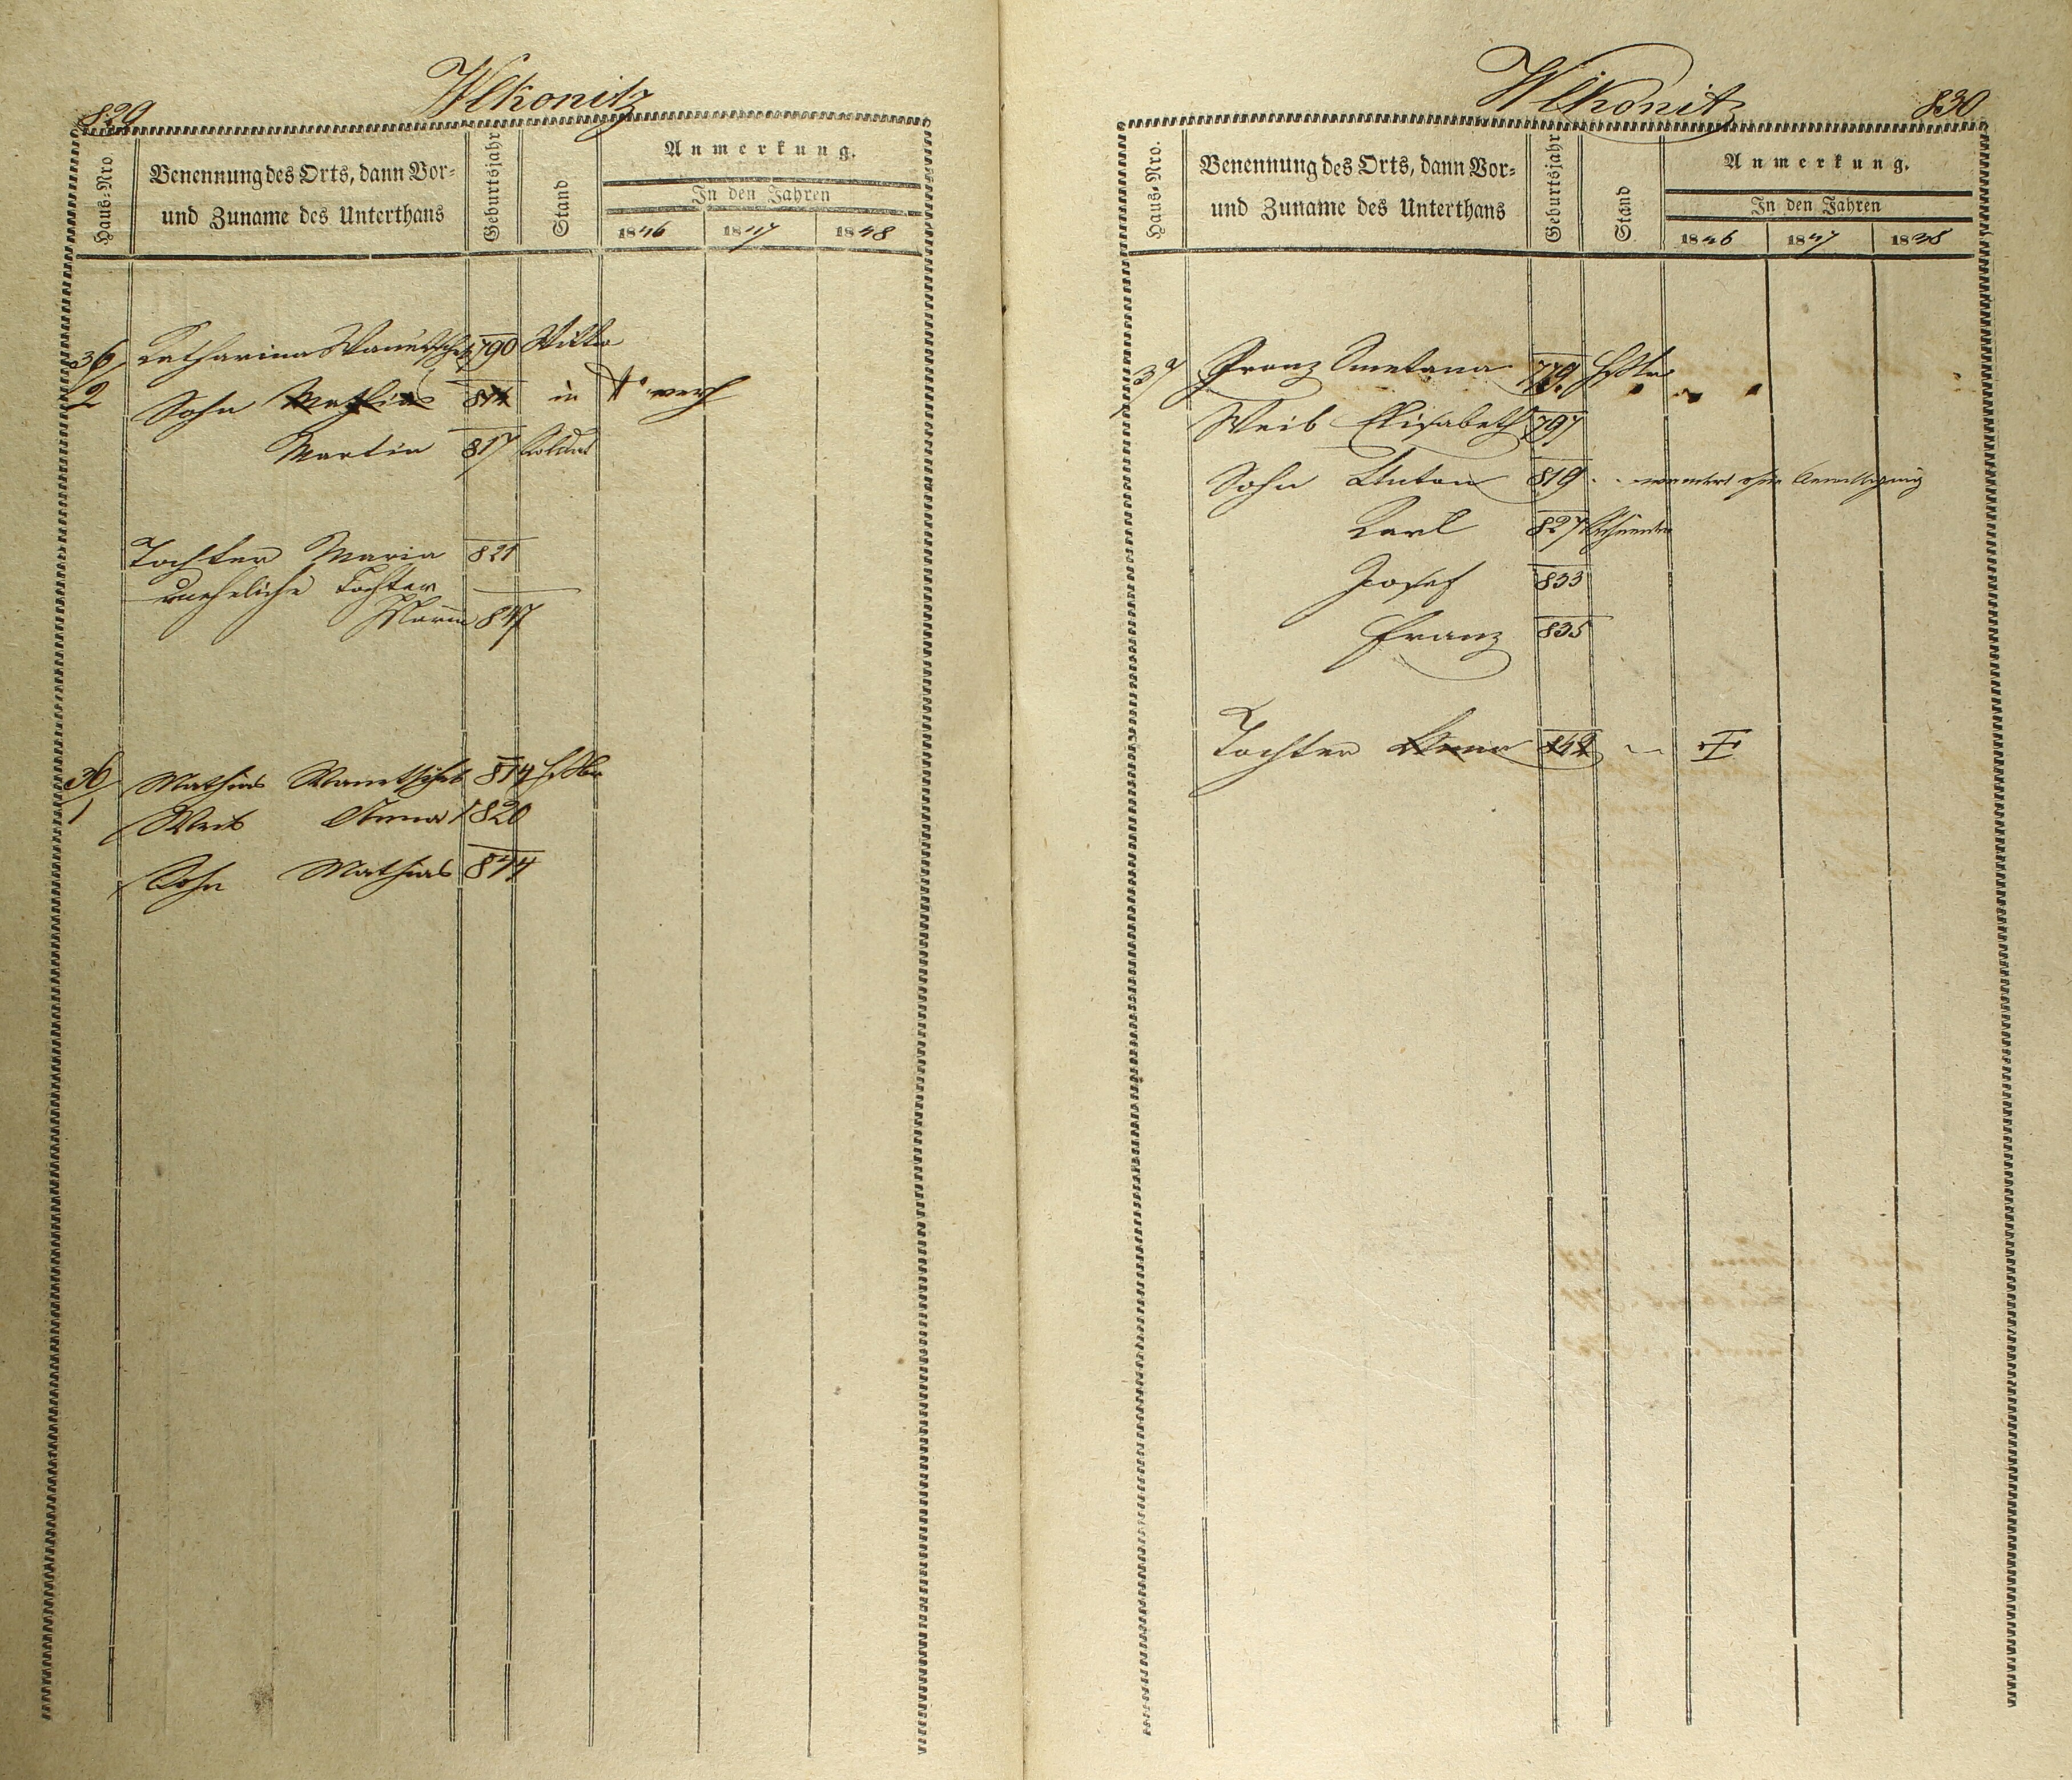 829
Wlkonitz
Haus-Nro.
Benennung des Orts, dann Vor-
und Zuname des Unterthans
Geburtsjahr
Stand
Anmerkung.
In den Jahren
1846 1847 1848
36/2 Katharina 790 Wittw
Sohn Mathias 814 in
Martin 817 Soldat
Tochter Maria 821
uneheliche Tochter
Maria 847
36/1 Mathias Wanetschek 814
Weib Anna 1820
Sohn Mathias 844
Wlkonitz
830
Haus-Nro.
Benennung des Orts, dann Vor-
und Zuname des Unterthans
Geburtsjahr
Stand
Anmerkung.
In den Jahren
1846 1847 1848
37 Franz Smetana 779
Weib Elisabeth 797
Sohn Anton 819 ohne
Karl 827
Josef 833
Franz 835
Tochter Anna 842